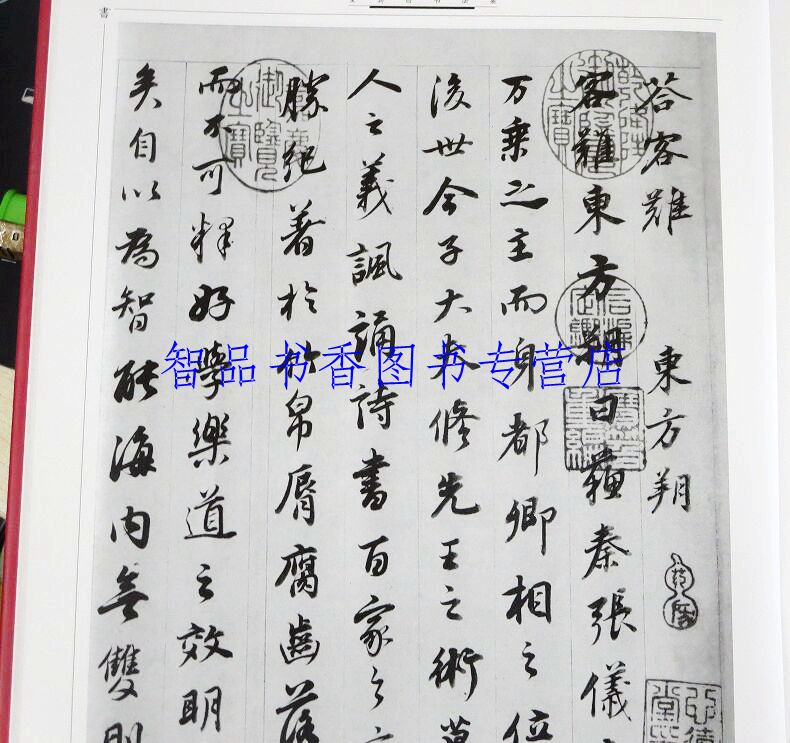 書
荅客難 東方朔
客難東方朔曰蘇秦張儀
万乗之主而身都卿相之位
後世今子大夫修先王之術慕
人之義諷誦詩書百家之
勝紀著於竹帛脣腐齒落
而不可釋好學樂道之效明
矣自以為智能海内無雙則
智品书香图书专营店